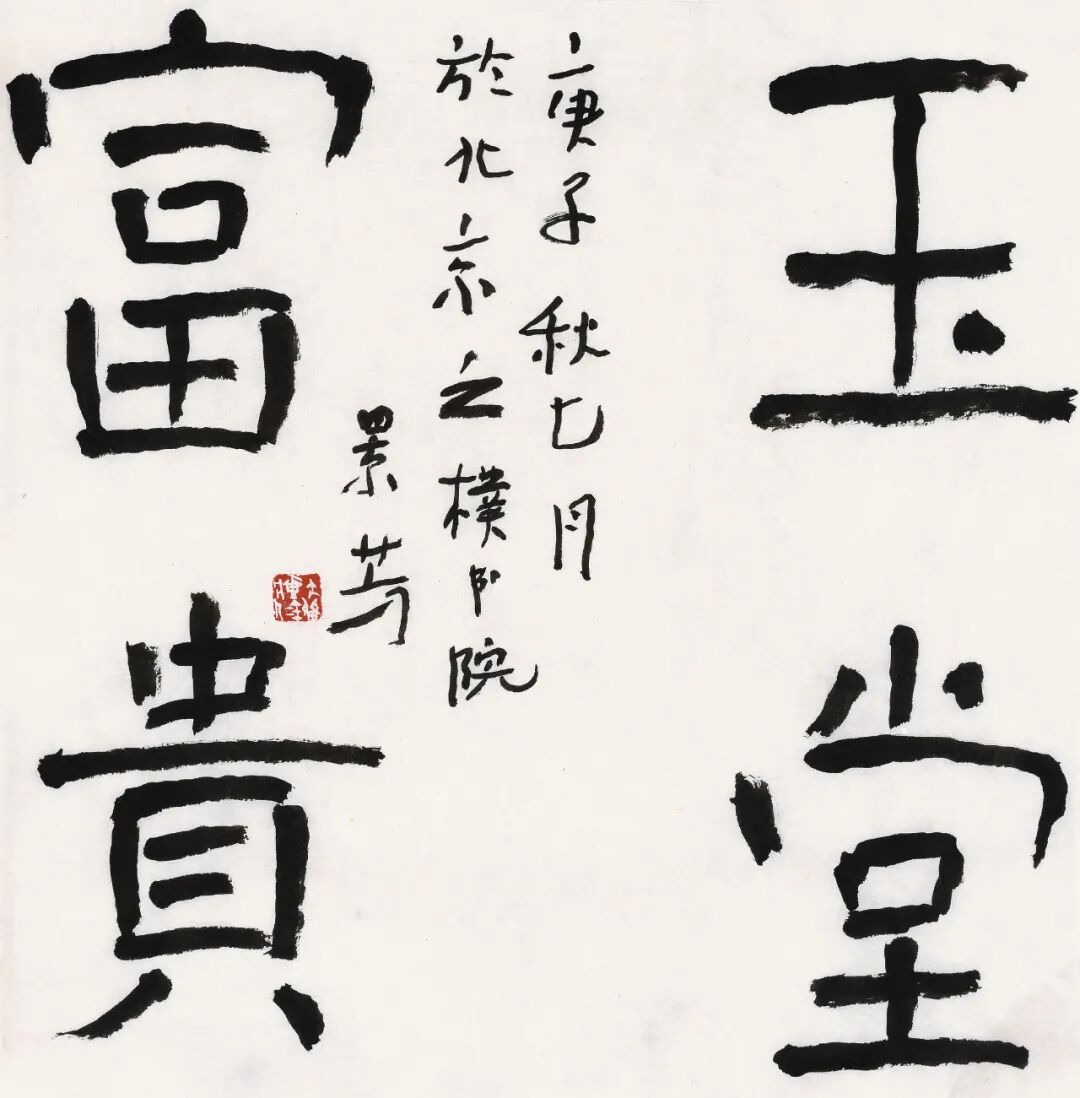 玉堂
富貴
庚子秋七月
於北京之樸书院
景芳